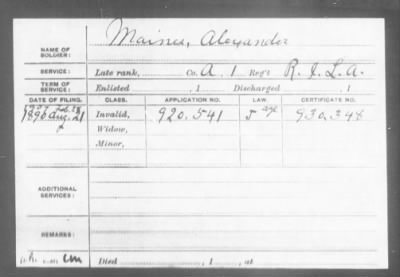 NAME OF SOLDIER: Maines, Alexander
SERVICE: Late rank, Co. A. 1 Reg't R. I. L. A.
TERM OF SERVICE: Enlisted , 1 Discharged , 1
DATE OF FILING. CLASS. APPLICATION NO. LAW. CERTIFICATE NO.
1896 Aug. 21 Invalid, 920.541 age 930.348
Widow,
Minor,
ADDITIONAL SERVICES:
REMARKS:
Died , 1 , at